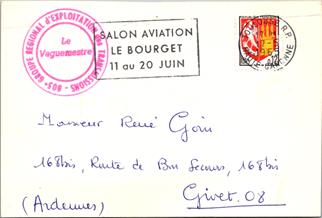 GROUPE RÉGIONAL D'EXPLOITATION des TRANSMISSIONS - 803 -
Le
Vaguemestre
SALON AVIATION
LE BOURGET
11 au 20 JUIN
R.P.
HAUTE-GARONNE
Monsieur René Goin
168bis, Route de Bon Secours, 168bis
Givet. 08
(Ardennes)